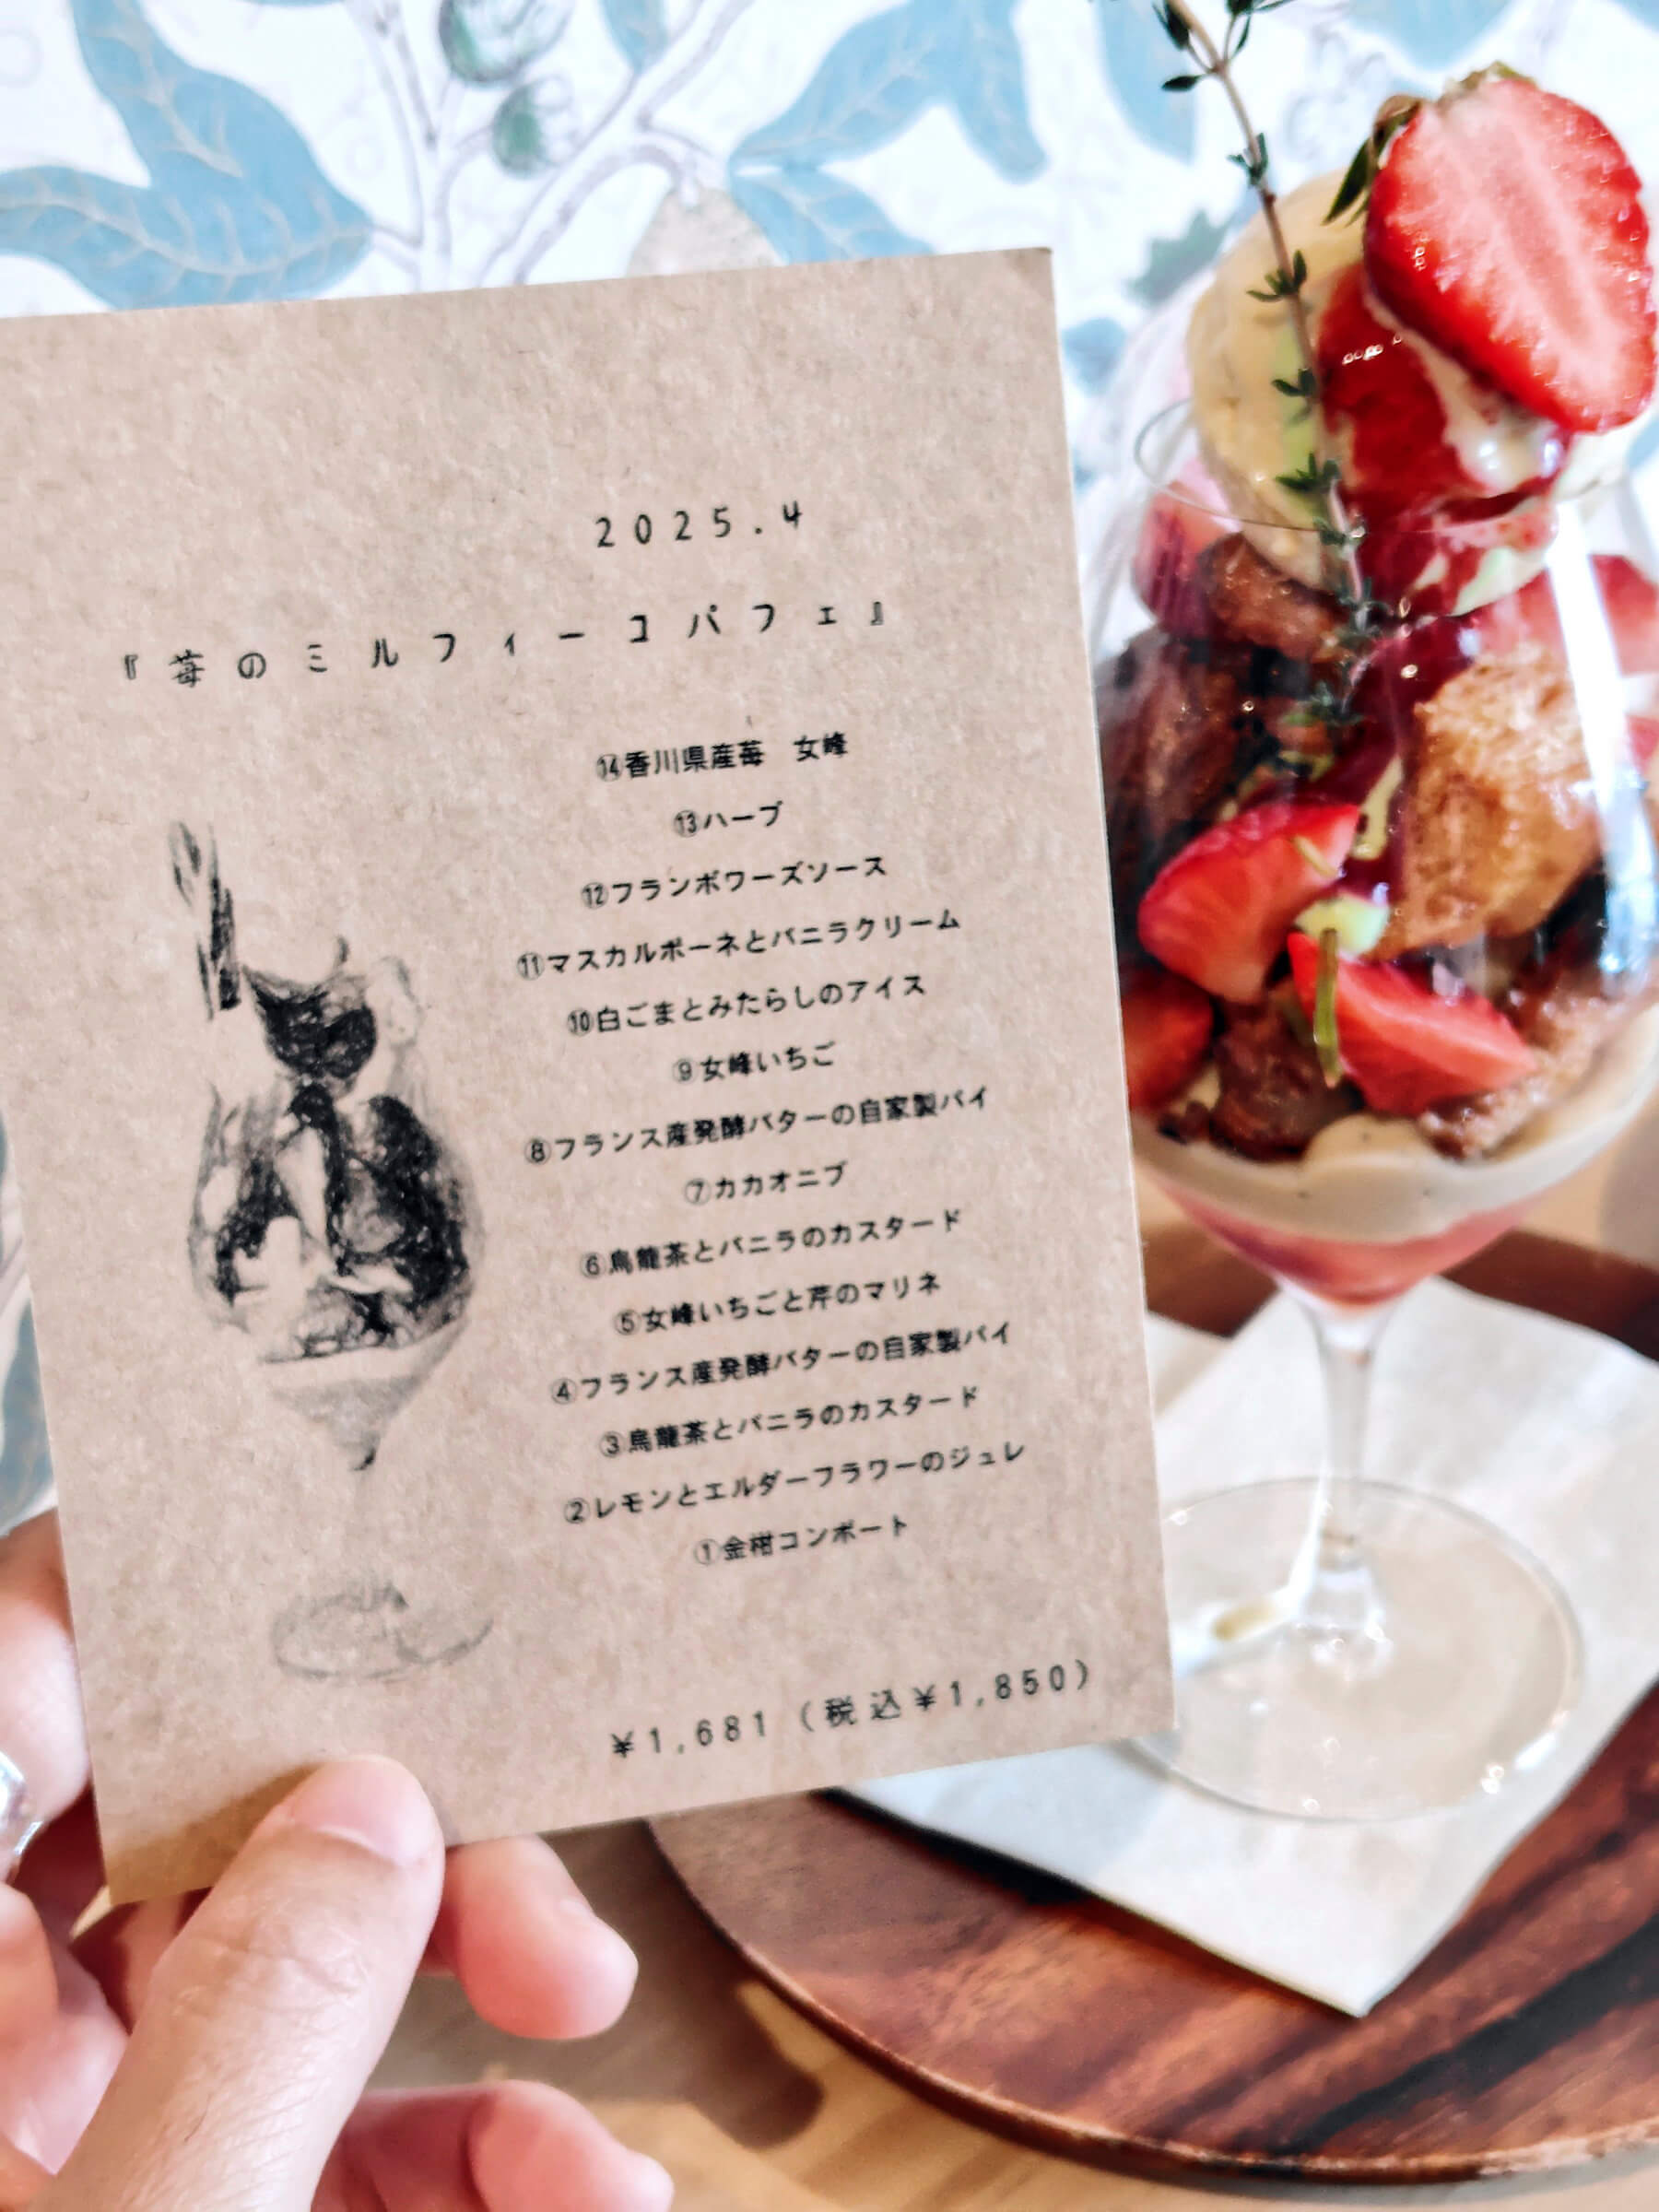 2025.4
『苺のミルフィーユパフェ』
⑭香川県産苺　女峰
⑬ハーブ
⑫フランボワーズソース
⑪マスカルポーネとバニラクリーム
⑩白ごまとみたらしのアイス
⑨女峰いちご
⑧フランス産発酵バターの自家製パイ
⑦カカオニブ
⑥烏龍茶とバニラのカスタード
⑤女峰いちごと芹のマリネ
④フランス産発酵バターの自家製パイ
③烏龍茶とバニラのカスタード
②レモンとエルダーフラワーのジュレ
①金柑コンポート
¥1,681（税込¥1,850）